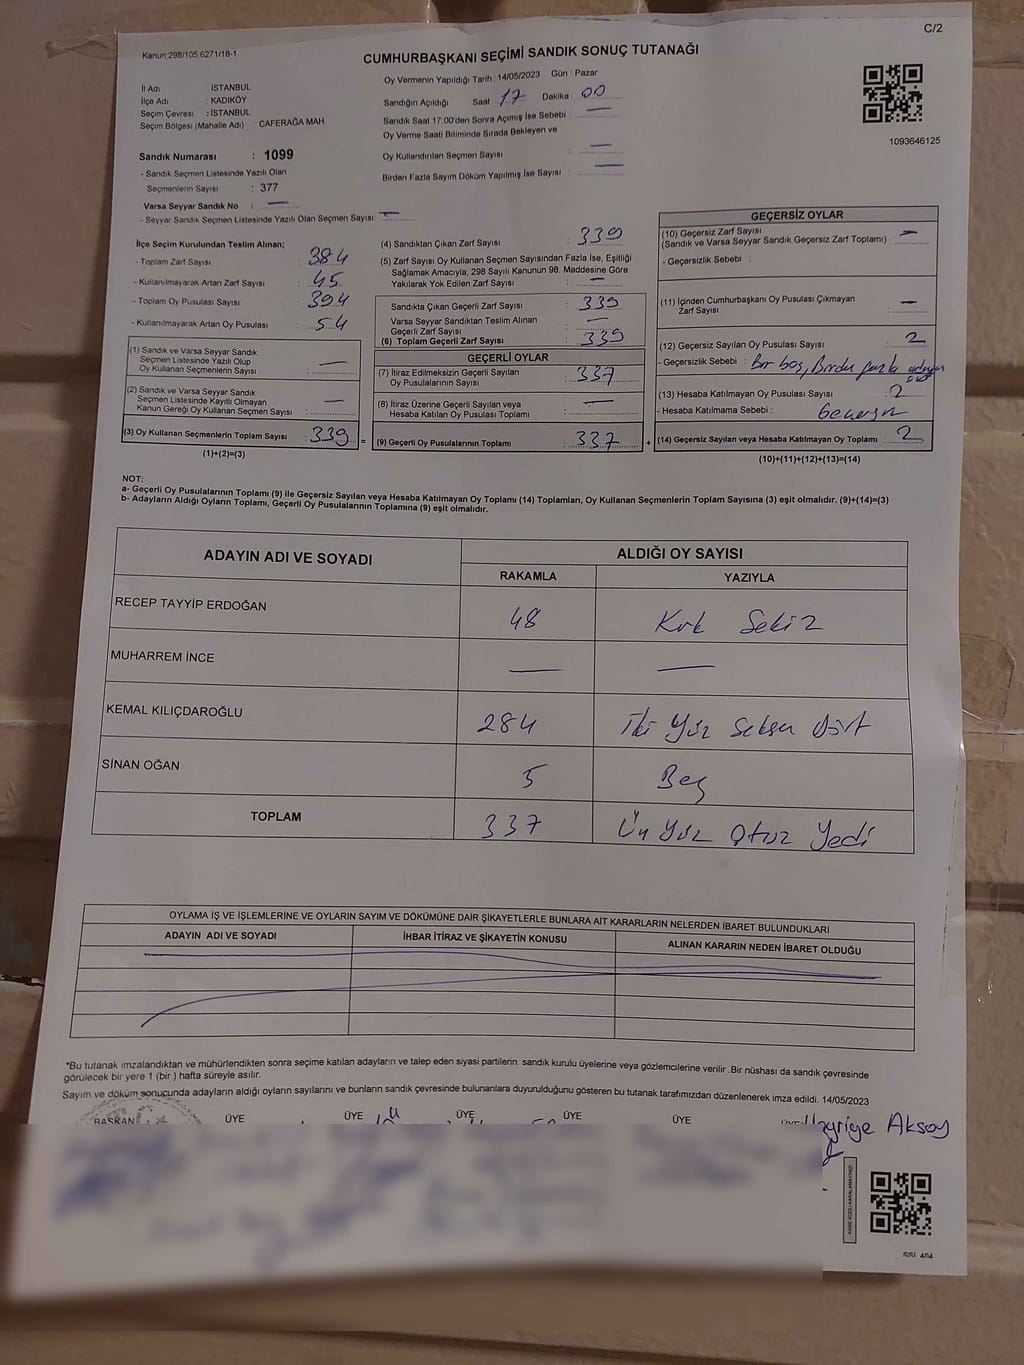 C/2
Kanun 298/105 6271/18-1
CUMHURBAŞKANI SEÇİMİ SANDIK SONUÇ TUTANAĞI
1093646125
İl Adı : İSTANBUL
İlçe Adı : KADIKÖY
Seçim Çevresi : İSTANBUL
Seçim Bölgesi (Mahalle Adı) : CAFERAĞA MAH
Sandık Numarası : 1099
- Sandık Seçmen Listesinde Yazılı Olan
Seçmenlerin Sayısı : 377
Varsa Seyyar Sandık No : —
- Seyyar Sandık Seçmen Listesinde Yazılı Olan Seçmen Sayısı: —
Oy Vermenin Yapıldığı Tarih : 14/05/2023 Gün : Pazar
Sandığın Açıldığı Saat 17 Dakika 00
Sandık Saat 17:00'den Sonra Açımış İse Sebebi : —
Oy Verme Saati Bitiminde Sırada Bekleyen ve
Oy Kullandırılan Seçmen Sayısı : —
Birden Fazla Sayım Döküm Yapılmış İse Sayısı : —
İlçe Seçim Kurulundan Teslim Alınan;
- Toplam Zarf Sayısı : 384
- Kullanılmayarak Artan Zarf Sayısı : 45
- Toplam Oy Pusulası Sayısı : 394
- Kullanılmayarak Artan Oy Pusulası : 54
(1) Sandık ve Varsa Seyyar Sandık
Seçmen Listesinde Yazılı Olup
Oy Kullanan Seçmenlerin Sayısı : —
(2) Sandık ve Varsa Seyyar Sandık
Seçmen Listesinde Kayıtlı Olmayan
Kanun Gereği Oy Kullanan Seçmen Sayısı : —
(3) Oy Kullanan Seçmenlerin Toplam Sayısı : 339 =
(1)+(2)=(3)
(4) Sandıktan Çıkan Zarf Sayısı : 339
(5) Zarf Sayısı Oy Kullanan Seçmen Sayısından Fazla İse, Eşitliği
Sağlamak Amacıyla; 298 Sayılı Kanunun 98. Maddesine Göre
Yakılarak Yok Edilen Zarf Sayısı : —
Sandıkta Çıkan Geçerli Zarf Sayısı : 339
Varsa Seyyar Sandıktan Teslim Alınan
Geçerli Zarf Sayısı : —
(6) Toplam Geçerli Zarf Sayısı : 339
GEÇERLİ OYLAR
(7) İtiraz Edilmeksizin Geçerli Sayılan
Oy Pusulalarının Sayısı : 337
(8) İtiraz Üzerine Geçerli Sayılan veya
Hesaba Katılan Oy Pusulası Toplamı : —
(9) Geçerli Oy Pusulalarının Toplamı : 337 +
GEÇERSİZ OYLAR
(10) Geçersiz Zarf Sayısı
(Sandık ve Varsa Seyyar Sandık Geçersiz Zarf Toplamı) : —
- Geçersizlik Sebebi :
(11) İçinden Cumhurbaşkanı Oy Pusulası Çıkmayan
Zarf Sayısı : —
(12) Geçersiz Sayılan Oy Pusulası Sayısı : 2
- Geçersizlik Sebebi : Bir boş, Birden fazla
(13) Hesaba Katılmayan Oy Pusulası Sayısı : 2
- Hesaba Katılmama Sebebi : Geçersiz
(14) Geçersiz Sayılan veya Hesaba Katılmayan Oy Toplamı : 2
(10)+(11)+(12)+(13)=(14)
NOT:
a- Geçerli Oy Pusulalarının Toplamı (9) ile Geçersiz Sayılan veya Hesaba Katılmayan Oy Toplamı (14) Toplamları, Oy Kullanan Seçmenlerin Toplam Sayısına (3) eşit olmalıdır. (9)+(14)=(3)
b- Adayların Aldığı Oyların Toplamı, Geçerli Oy Pusulalarının Toplamına (9) eşit olmalıdır.
ADAYIN ADI VE SOYADI ALDIĞI OY SAYISI
RAKAMLA YAZIYLA
RECEP TAYYİP ERDOĞAN 48 Kırk Sekiz
MUHARREM İNCE — —
KEMAL KILIÇDAROĞLU 284 İki Yüz Seksen Dört
SİNAN OĞAN 5 Beş
TOPLAM 337 Üç Yüz Otuz Yedi
OYLAMA İŞ VE İŞLEMLERİNE VE OYLARIN SAYIM VE DÖKÜMÜNE DAİR ŞİKAYETLERLE BUNLARA AİT KARARLARIN NELERDEN İBARET BULUNDUKLARI
ADAYIN ADI VE SOYADI İHBAR İTİRAZ VE ŞİKAYETİN KONUSU ALINAN KARARIN NEDEN İBARET OLDUĞU
*Bu tutanak imzalandıktan ve mühürlendikten sonra seçime katılan adayların ve talep eden siyasi partilerin sandık kurulu üyelerine veya gözlemcilerine verilir .Bir nüshası da sandık çevresinde
görülecek bir yere 1 (bir ) hafta süreyle asılır.
Sayım ve döküm sonucunda adayların aldığı oyların sayılarını ve bunların sandık çevresinde bulunanlara duyurulduğunu gösteren bu tutanak tarafımızdan düzenlenerek imza edildi. 14/05/2023
BAŞKAN ÜYE ÜYE ÜYE ÜYE ÜYE
Hayriye Aksoy